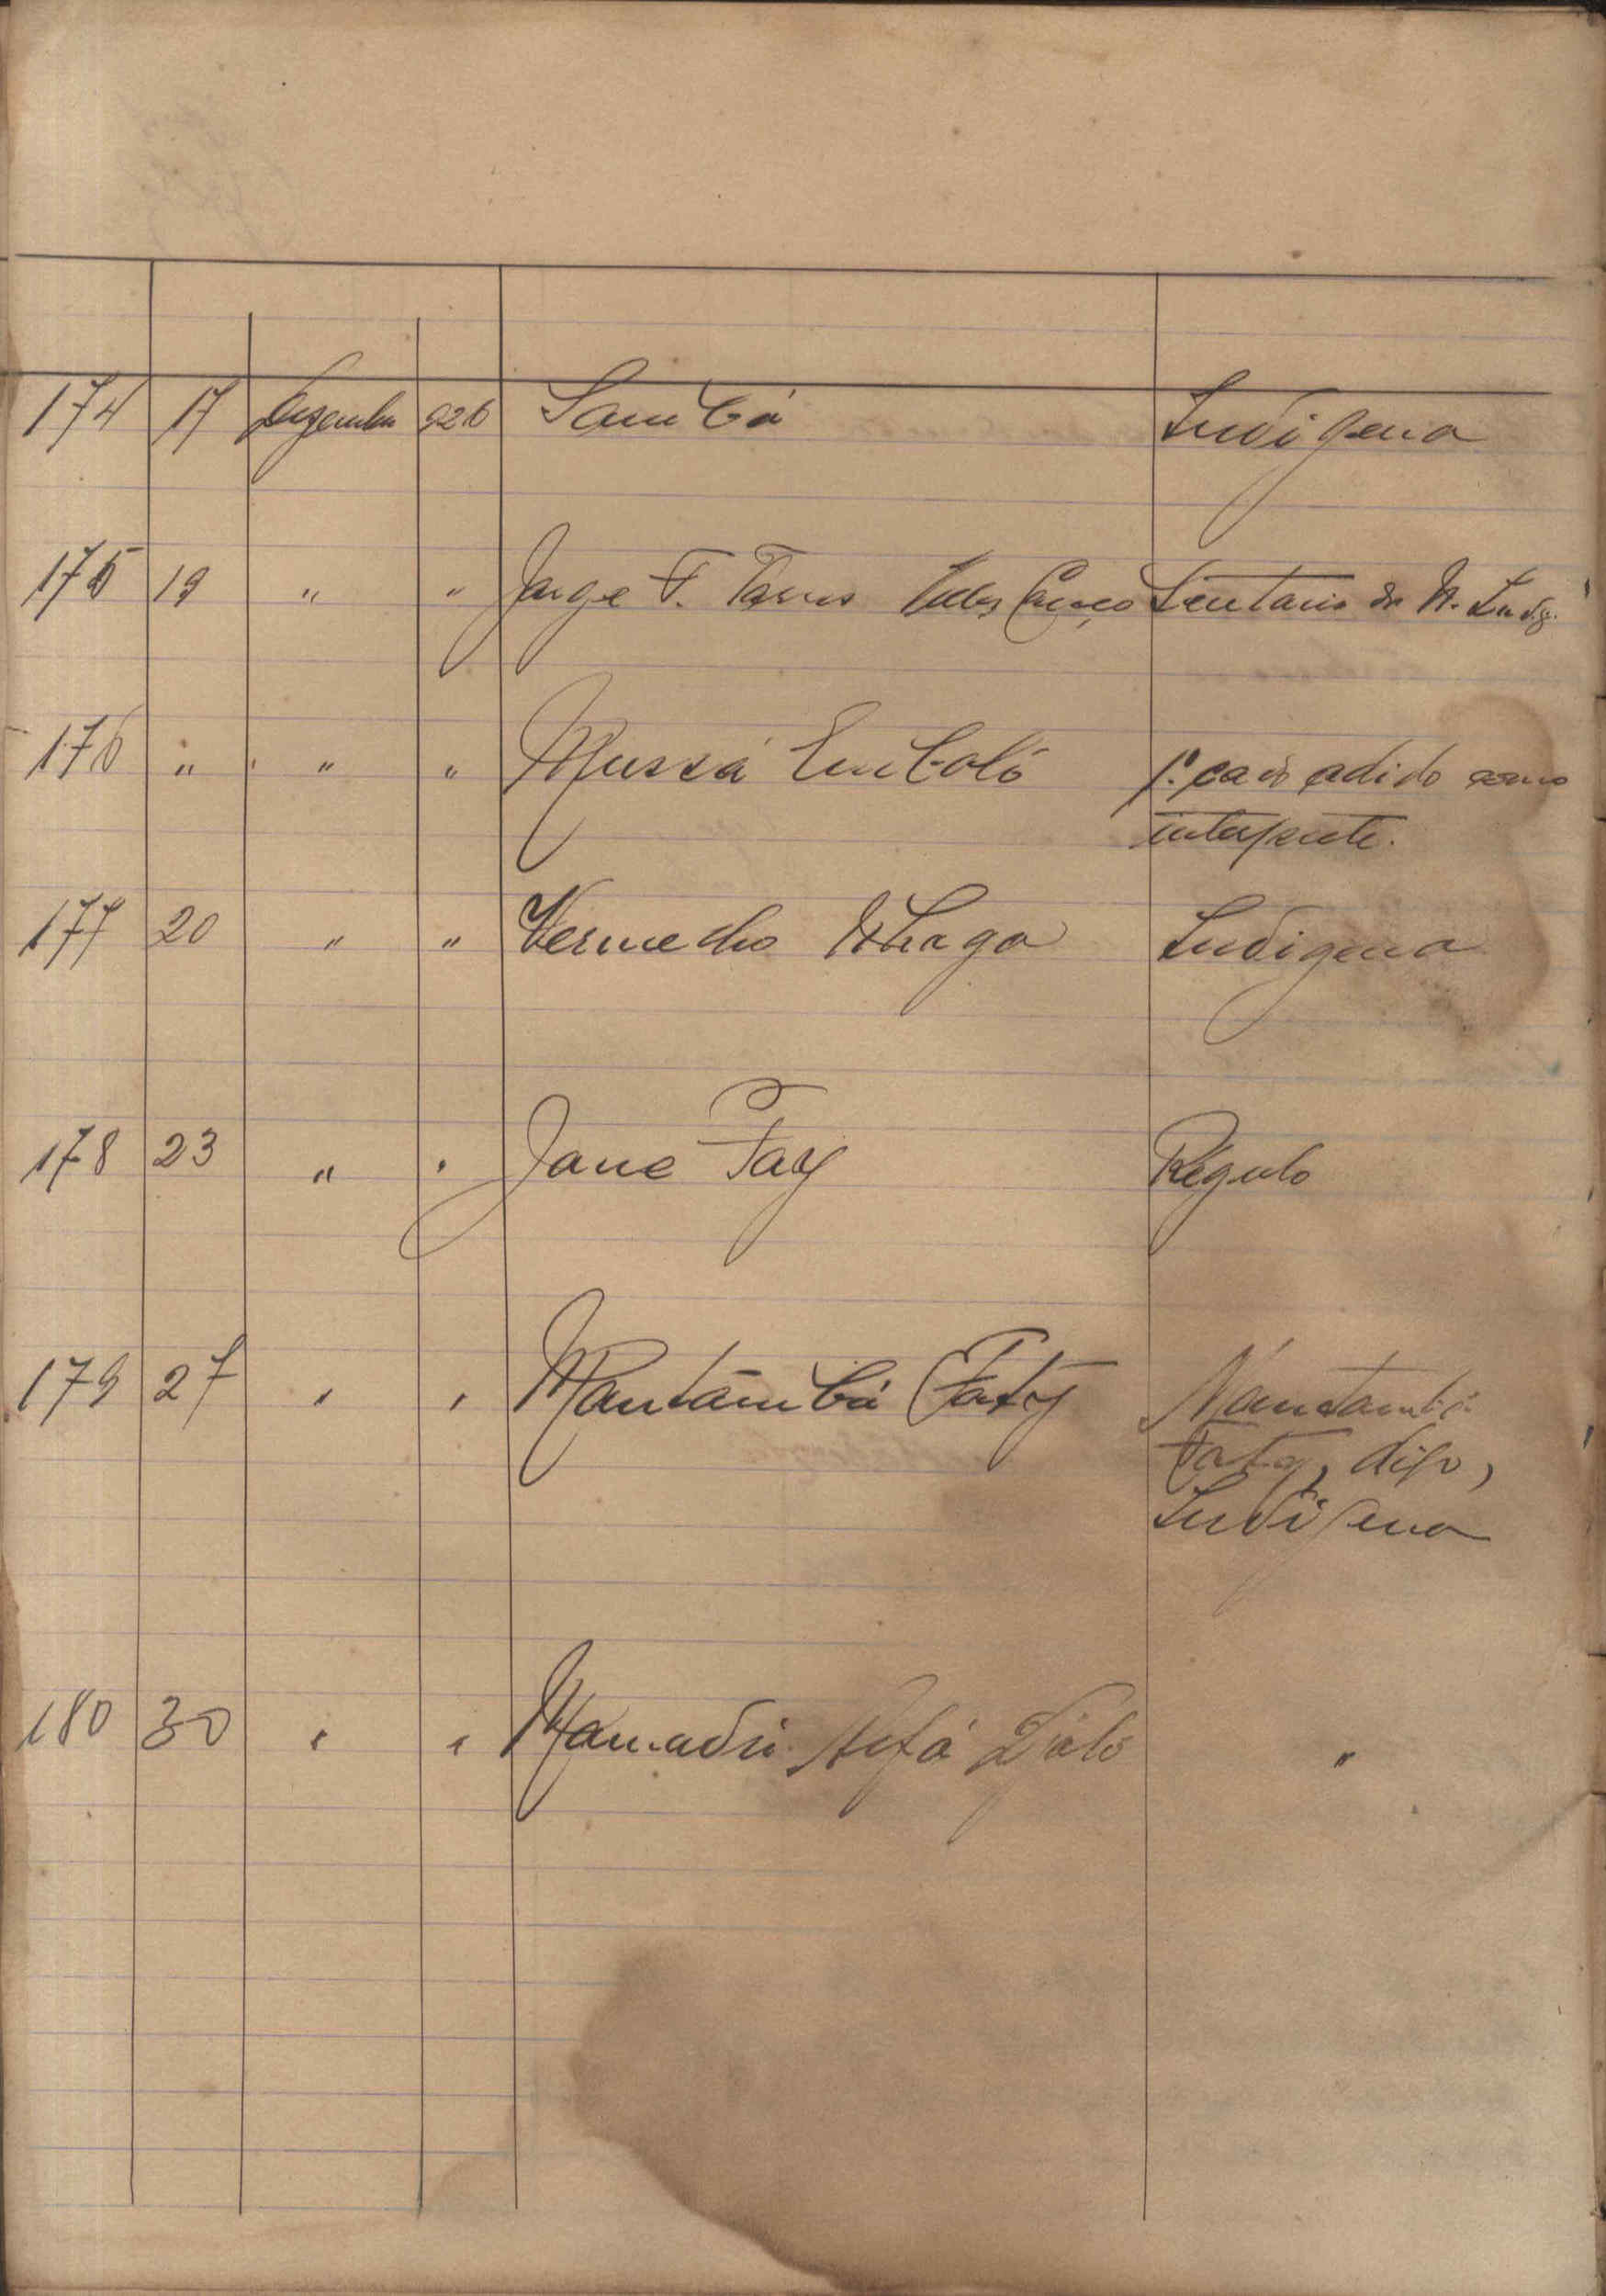 174 17 Dezembro 926 Sambá Indigena
175 19 " " Jorge F. Torres Secretario dos N. Indig.
176 " " " Mussá Embaló 1º cabo adido como
interprete.
177 20 " " Vermelho Indigena
178 23 " " Jane Fay Régulo
179 27 " " Mantâmbá Faty Nantambá
Faty, digo,
Indigena
180 30 " " Mamadú Alfá Djaló "